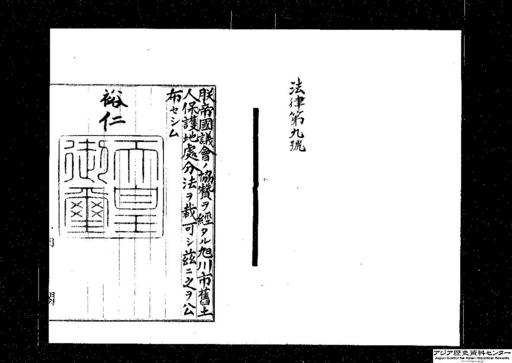 法律第九號
朕帝國議會ノ協贊ヲ經タル旭川市舊土
人保護地處分法ヲ裁可シ茲ニ之ヲ公
布セシム
裕仁
天皇
御璽
内閣
アジア歴史資料センター
Japan Center for Asian Historical Records